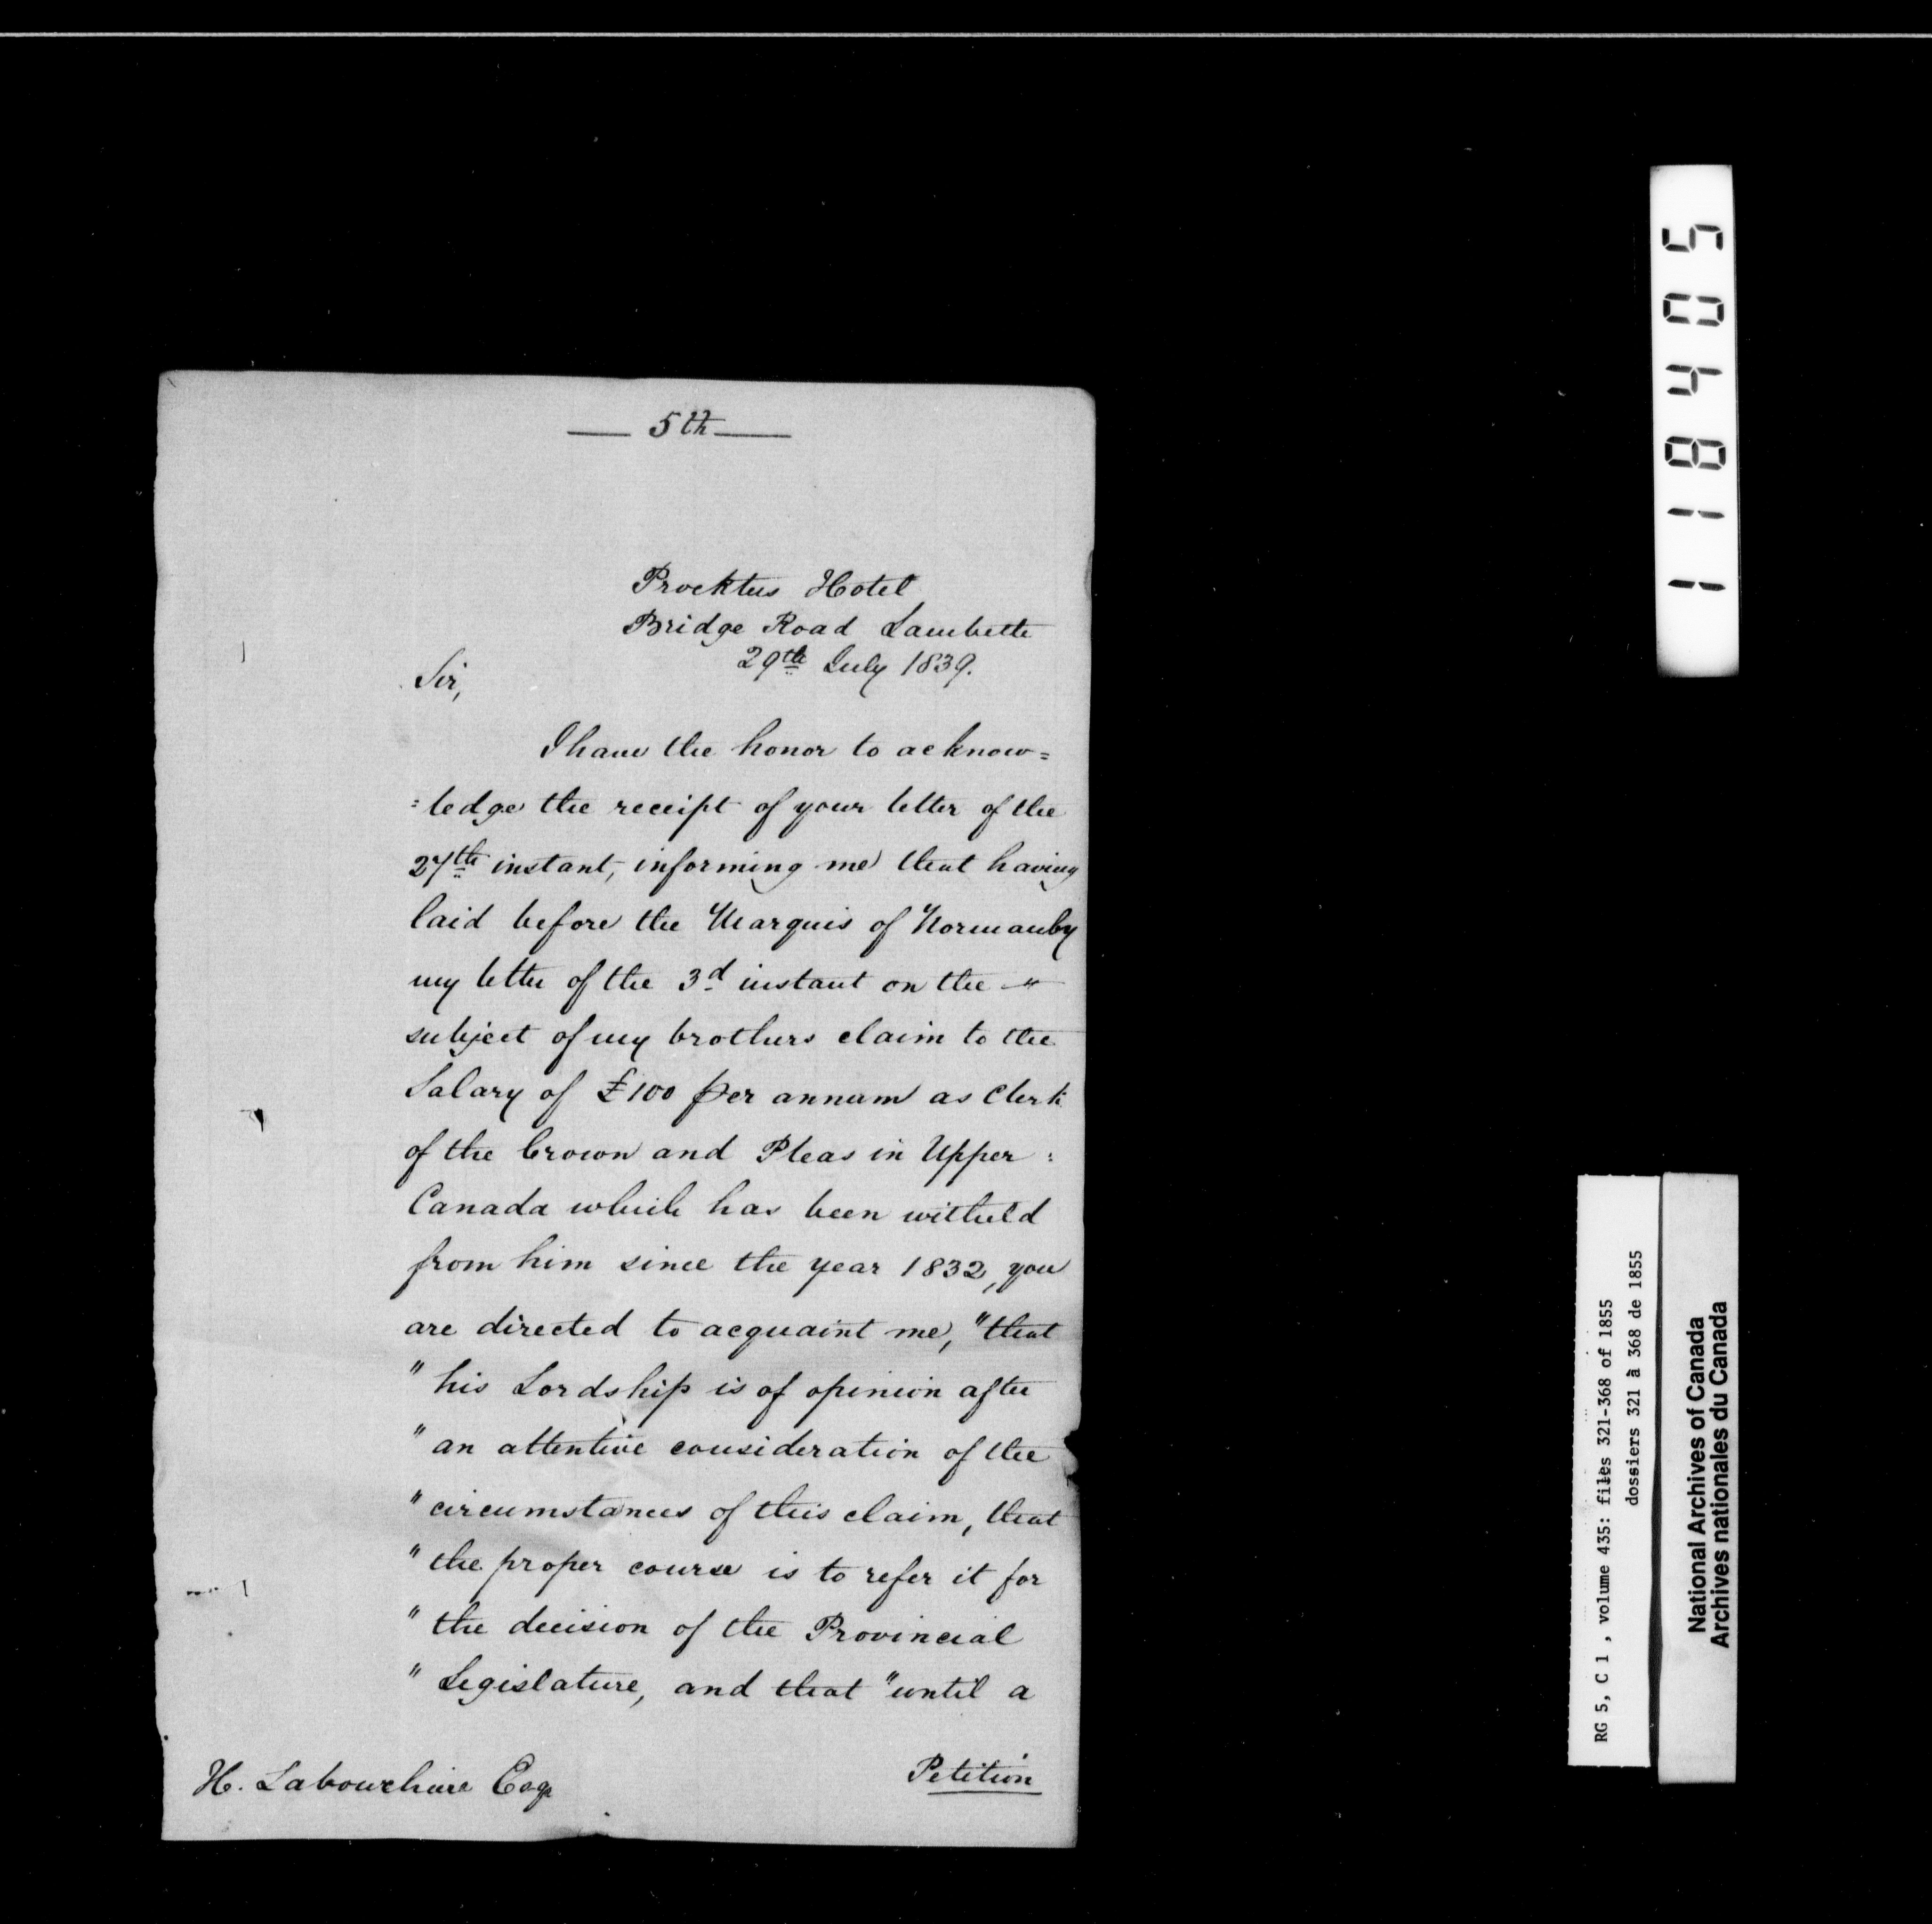 5th
Prockters Hotel
Bridge Road Lambeth
29th July 1839.
Sir,
I have the honor to acknow=
=ledge the receipt of your letter of the
27th instant, informing me that having
laid before the Marquis of Normanby
my letter of the 3d instant on the "
subject of my brothers claim to the
Salary of £100 per annum as Clerk
of the Crown and Pleas in Upper :
Canada which has been witheld
from him since the year 1832, you
are directed to acquaint me, "that
" his Lordship is of opinion after
" an attentive consideration of the
" circumstances of this claim, that
" the proper course is to refer it for
" the decision of the Provincial
" Legislature, and that "until a
Petition
H. Labouchere Esqr
118405
RG 5, C 1 , volume 435: files 321-368 of 1855
dossiers 321 à 368 de 1855
National Archives of Canada
Archives nationales du Canada